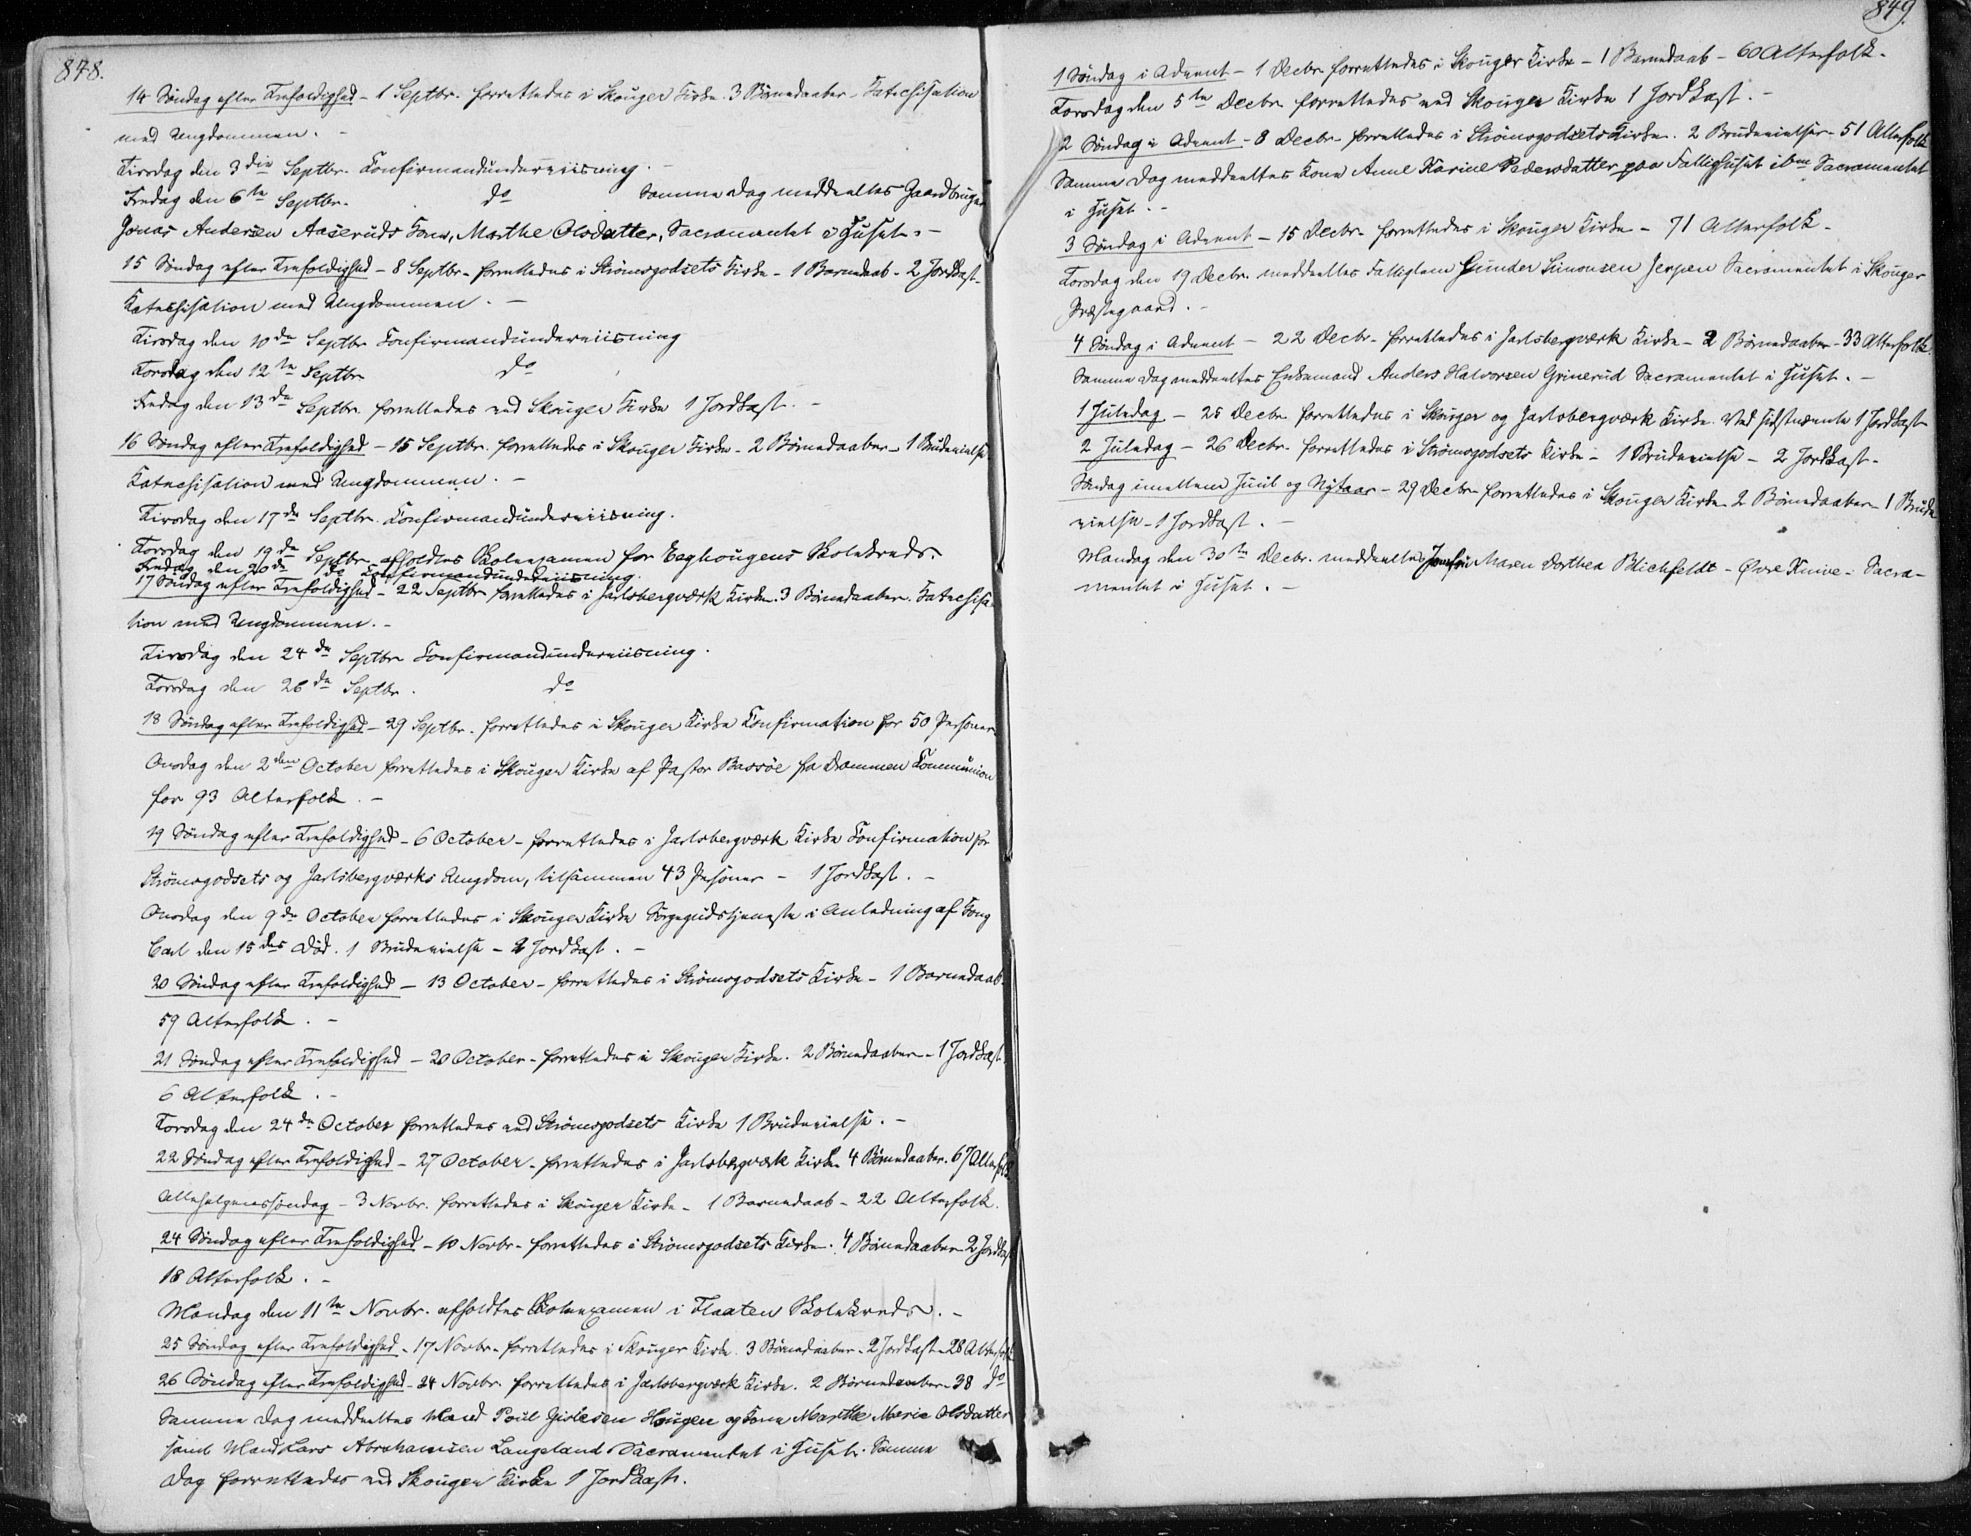 848.
14 Søndag efter Trefoldighed - 1 Septbr. forrettedes i Skouger Kirke. 3 Børnedaaber - Katechisation
med Ungdommen. -
Tirsdag den 3die Septbr. Confirmandünderviisning. -
Fredag den 6te Septbr. do Samme Dag meddeeltes Gaardbruger
Jonas Andersen Aaserüds Kone, Marthe Olsdatter, Sacramentet i Huset. -
15 Søndag efter Trefoldighed - 8 Septbr - forrettedes i Strömsgodsets Kirke - 1 Barnedaab - 2 Jordkast -
Katechisation med Ungdommen. -
Tirsdag den 10de Septbr Confirmandünderviisning
Torsdag den 12te Septbr do
Fredag den 13de Septbr. forrettedes ved Skouger Kirke 1 Jordkast. -
16 Søndag efter Trefoldighed - 15 Septbr. forrettedes i Skouger Kirke - 2 Børnedaaber - 1 Brüdevielse
Katechisation med Ungdommen. -
Tirsdag den 17de Septbr. Confirmandünderviisning.
Torsdag den 19de Septbr. afholdtes Skoleexamen for Eeghougens Skolekreds.
Fredag den 20de do Confirmandünderviisning.
17 Søndag efter Trefoldighed - 22 Septbr forrettedes i Jarlsbergværk Kirke. 3 Børnedaaber. Katechisa-
tion med Ungdommen. -
Tirsdag den 24de Septbr Confirmandunderviisning.
Torsdag den 26de Septbr. do
18 Søndag efter Trefoldighed - 29 Septbr. forrettedes i Skouger Kirke Confirmation for 50 Personer
Onsdag den 2den October forrettedes i Skouger Kirke af Pastor Bassöe fra Drammen Communion
for 93 Alterfolk. -
19 Søndag efter Trefoldighed - 6 October - forrettedes i Jarlsbergværk Kirke Confirmation for
Strömsgodsets og Jarlsbergværks Ungdom, tilsammen 43 Personer - 1 Jordkast. -
Onsdag den 9de October forrettedes i Skouger Kirke Sørgegudstjeneste i Anledning af Kong
Carl den 15des Död. 1 Brudevielse - 2 Jordkast. -
20 Søndag efter Trefoldighed - 13 October - forrettedes i Strömsgodsets Kirke - 1 Barnedaab -
59 Alterfolk. -
21 Søndag efter Trefoldighed - 20 October - forrettedes i Skouger Kirke. 2 Børnedaaber - 1 Jordkast
6 Alterfolk. -
Torsdag den 24de October forrettedes ved Strömsgodsets Kirke 1 Brüdevielse. -
22 Søndag efter Trefoldighed - 27 October - forrettedes i Jarlsbergværk Kirke 4 Børnedaaber. 67 Alterfolk
Allehelgenssøndag - 3 Novbr. forrettedes i Skouger Kirke - 1 Barnedaab - 22 Alterfolk.
24 Søndag efter Trefoldighed - 10 Novbr - forrettedes i Strömsgodsets Kirke. 4 Børnedaaber 2 Jordkast
18 Alterfolk. -
Mandag den 11te Novbr. afholdtes Skoleexamen i Flaaten Skolekreds. -
25 Søndag efter Trefoldighed - 17 Novbr - forrettedes i Skouger Kirke. 3 Børnedaaber - 2 Jordkast - 28 Alterfolk
26 Søndag efter Trefoldighed - 24 Novbr. forrettedes i Jarlsbergværk Kirke. 2 Børnedaaber - 38 do
Samme Dag meddeeltes Mand Poul Gislesen Hougen og Kone Marthe Marie Olsdatter
samt Mand Lars Abrahamsen Langeland Sacramentet i Huset. Samme
Dag forrettedes ved Skouger Kirke 1 Jordkast.
849.
1 Søndag i Advent - 1 Decbr forrettedes i Skouger Kirke - 1 Barnedaab - 60 Alterfolk -
Torsdag den 5te Decbr. forrettedes ved Skouger Kirke 1 Jordkast. -
2 Søndag i Advent - 8 Decbr - forrettedes i Strömsgodsets Kirke. 2 Brudevielser - 51 Alterfolk
Samme Dag meddeeltes Kone Anne Karine Pedersdatter paa Fattighuset ibm Sacramentet
i Huset. -
3 Søndag i Advent - 15 Decbr forrettedes i Skouger Kirke - 71 Alterfolk -
Torsdag den 19 Decbr. meddeeltes Fattiglem Gunder Simonsen Jerpen Sacramentet i Skouger
Præstegaard. -
4 Søndag i Advent - 22 Decbr - forrettedes i Jarlsbergværk Kirke - 2 Børnedaaber - 33 Alterfolk.
Samme Dag meddeeltes Enkemand Anders Halvorsen Grinerud Sacramentet i Huset. -
1 Juledag - 25 Decbr. forrettedes i Skouger og Jarlsbergværk Kirke. Ved sidstnævnte 1 Jordkast
2 Juledag - 26 Decbr. forrettedes i Strömsgodsets Kirke - 1 Brudevielse - 2 Jordkast -
Søndag imellem Juul og Nytaar - 29 Decbr forrettedes i Skouger Kirke 2 Børnedaaber - 1 Brude
vielse - 1 Jordkast. -
Mandag den 30te Decbr. meddeeltes Jomfru Maren Dorthea Blichfeldt - Øvre Knive - Sacra-
mentet i Huset. -